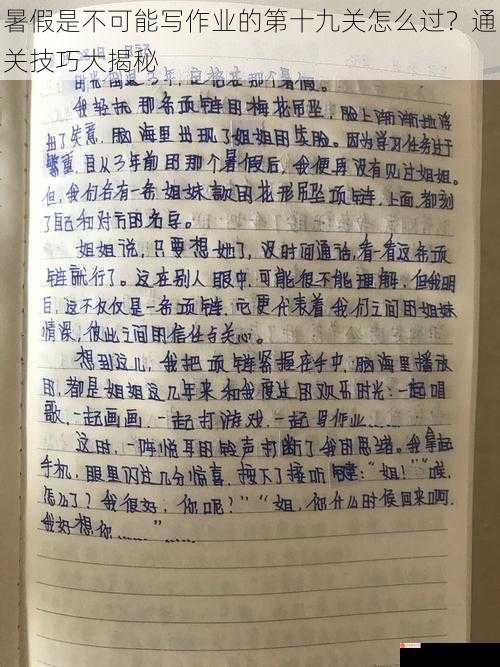 暑假是不可能写作业的第十九关怎么过？通
关技巧大揭秘
时光倒退3年,定格在那个暑假。
我轻抚那条项链的梅花吊坠,脸上渐渐地浮
出了失意,脑海里出现了姐姐的笑脸。因为学习任务过于
繁重,自从3年前的那个暑假后,我便再没有见过姐姐。
但,我们各有一条姐妹款的花形吊坠项链,上面都刻
了自己和对方的名字。
姐姐说,只要想她了,没时间通话,看一看这条项
链就行了。这在别人眼中,可能很不能理解,但我明
白,这不仅仅是一条项链,它更代表着我们之间的姐妹
情深,彼此之间的信任与关心。
想到这儿,我把项链紧握在手中,脑海里播放
的,都是姐姐这几年来和我度过的欢乐时光:一起唱
歌,一起画画,一起打游戏,一起写作业……
这时,一阵悦耳的铃声打断了我的思绪。我拿起
手机,眼里闪过几分惊喜,按下了接听键:“姐!”“喉,
怎么了?我很好,你呢?”“姐,你什么时候回来啊,
我好想你……”